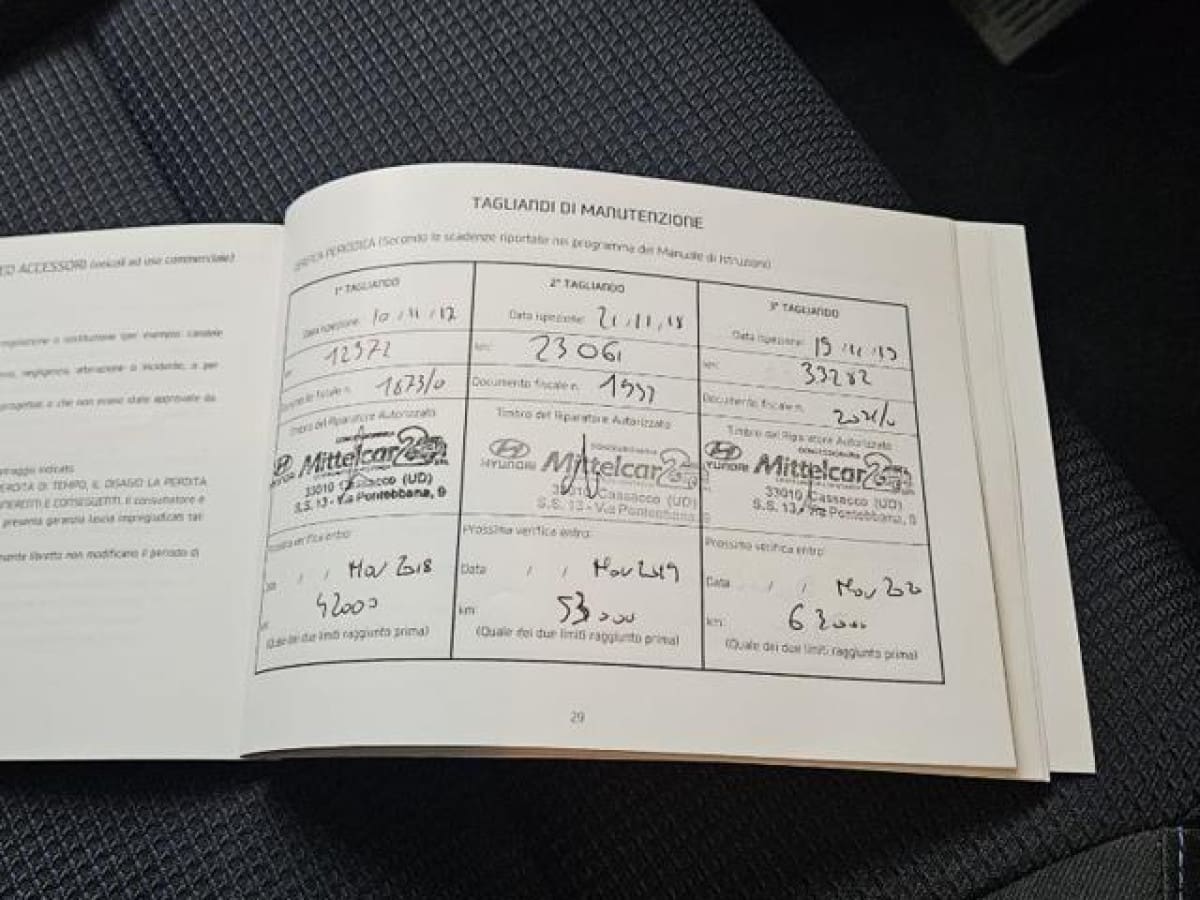 ED ACCESSORI (veicoli ad uso commerciale)
regolazione o sostituzione (per esempio: candele
negligenza, alterazione o incidente, o per
progettati o che non erano state approvate da
PERDITA DI TEMPO, IL DISAGIO LA PERDITA
INDIRETTI E CONSEGUENTI. Il consumatore e
presente garanzia lascia impregiudicati tali
libretto non modificano il periodo di
TAGLIANDI DI MANUTENZIONE
VERIFICA PERIODICA (Secondo le scadenze riportate nel programma del Manuale di Istruzioni)
1° TAGLIANDO
Data ispezione: 10/11/17
12372
Documento fiscale n. 1873/0
Timbro del Riparatore Autorizzato
CONCESSIONARIA
HYUNDAI Mittelcar
33010 Cassacco (UD)
S.S. 13 - Via Pontebbana, 9
Prossima verifica entro:
Data / / Nov 2018
42000
(Quale dei due limiti raggiunto prima)
2° TAGLIANDO
Data ispezione: 21/11/18
km: 23061
Documento fiscale n. 1997
Timbro del Riparatore Autorizzato
CONCESSIONARIA
HYUNDAI Mittelcar
33010 Cassacco (UD)
S.S. 13 - Via Pontebbana, 9
Prossima verifica entro:
Data / / Nov 2019
km: 53000
(Quale dei due limiti raggiunto prima)
3° TAGLIANDO
Data ispezione: 19/11/19
km: 33282
Documento fiscale n. 2021/0
Timbro del Riparatore Autorizzato
CONCESSIONARIA
HYUNDAI Mittelcar
33010 Cassacco (UD)
S.S. 13 - Via Pontebbana, 9
Prossima verifica entro:
Data / / Nov 2020
km: 63000
(Quale dei due limiti raggiunto prima)
29